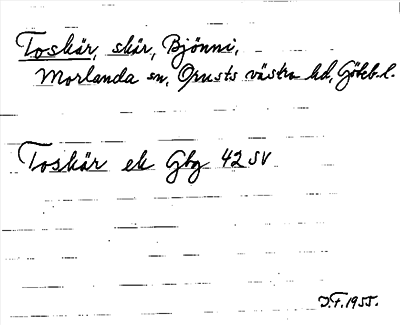 Toskär, skär, Bjönni,
Morlanda sn, Orusts västra hd, Göteb. l.
Toskär ek Gbg 42 SV
I.F. 1955.